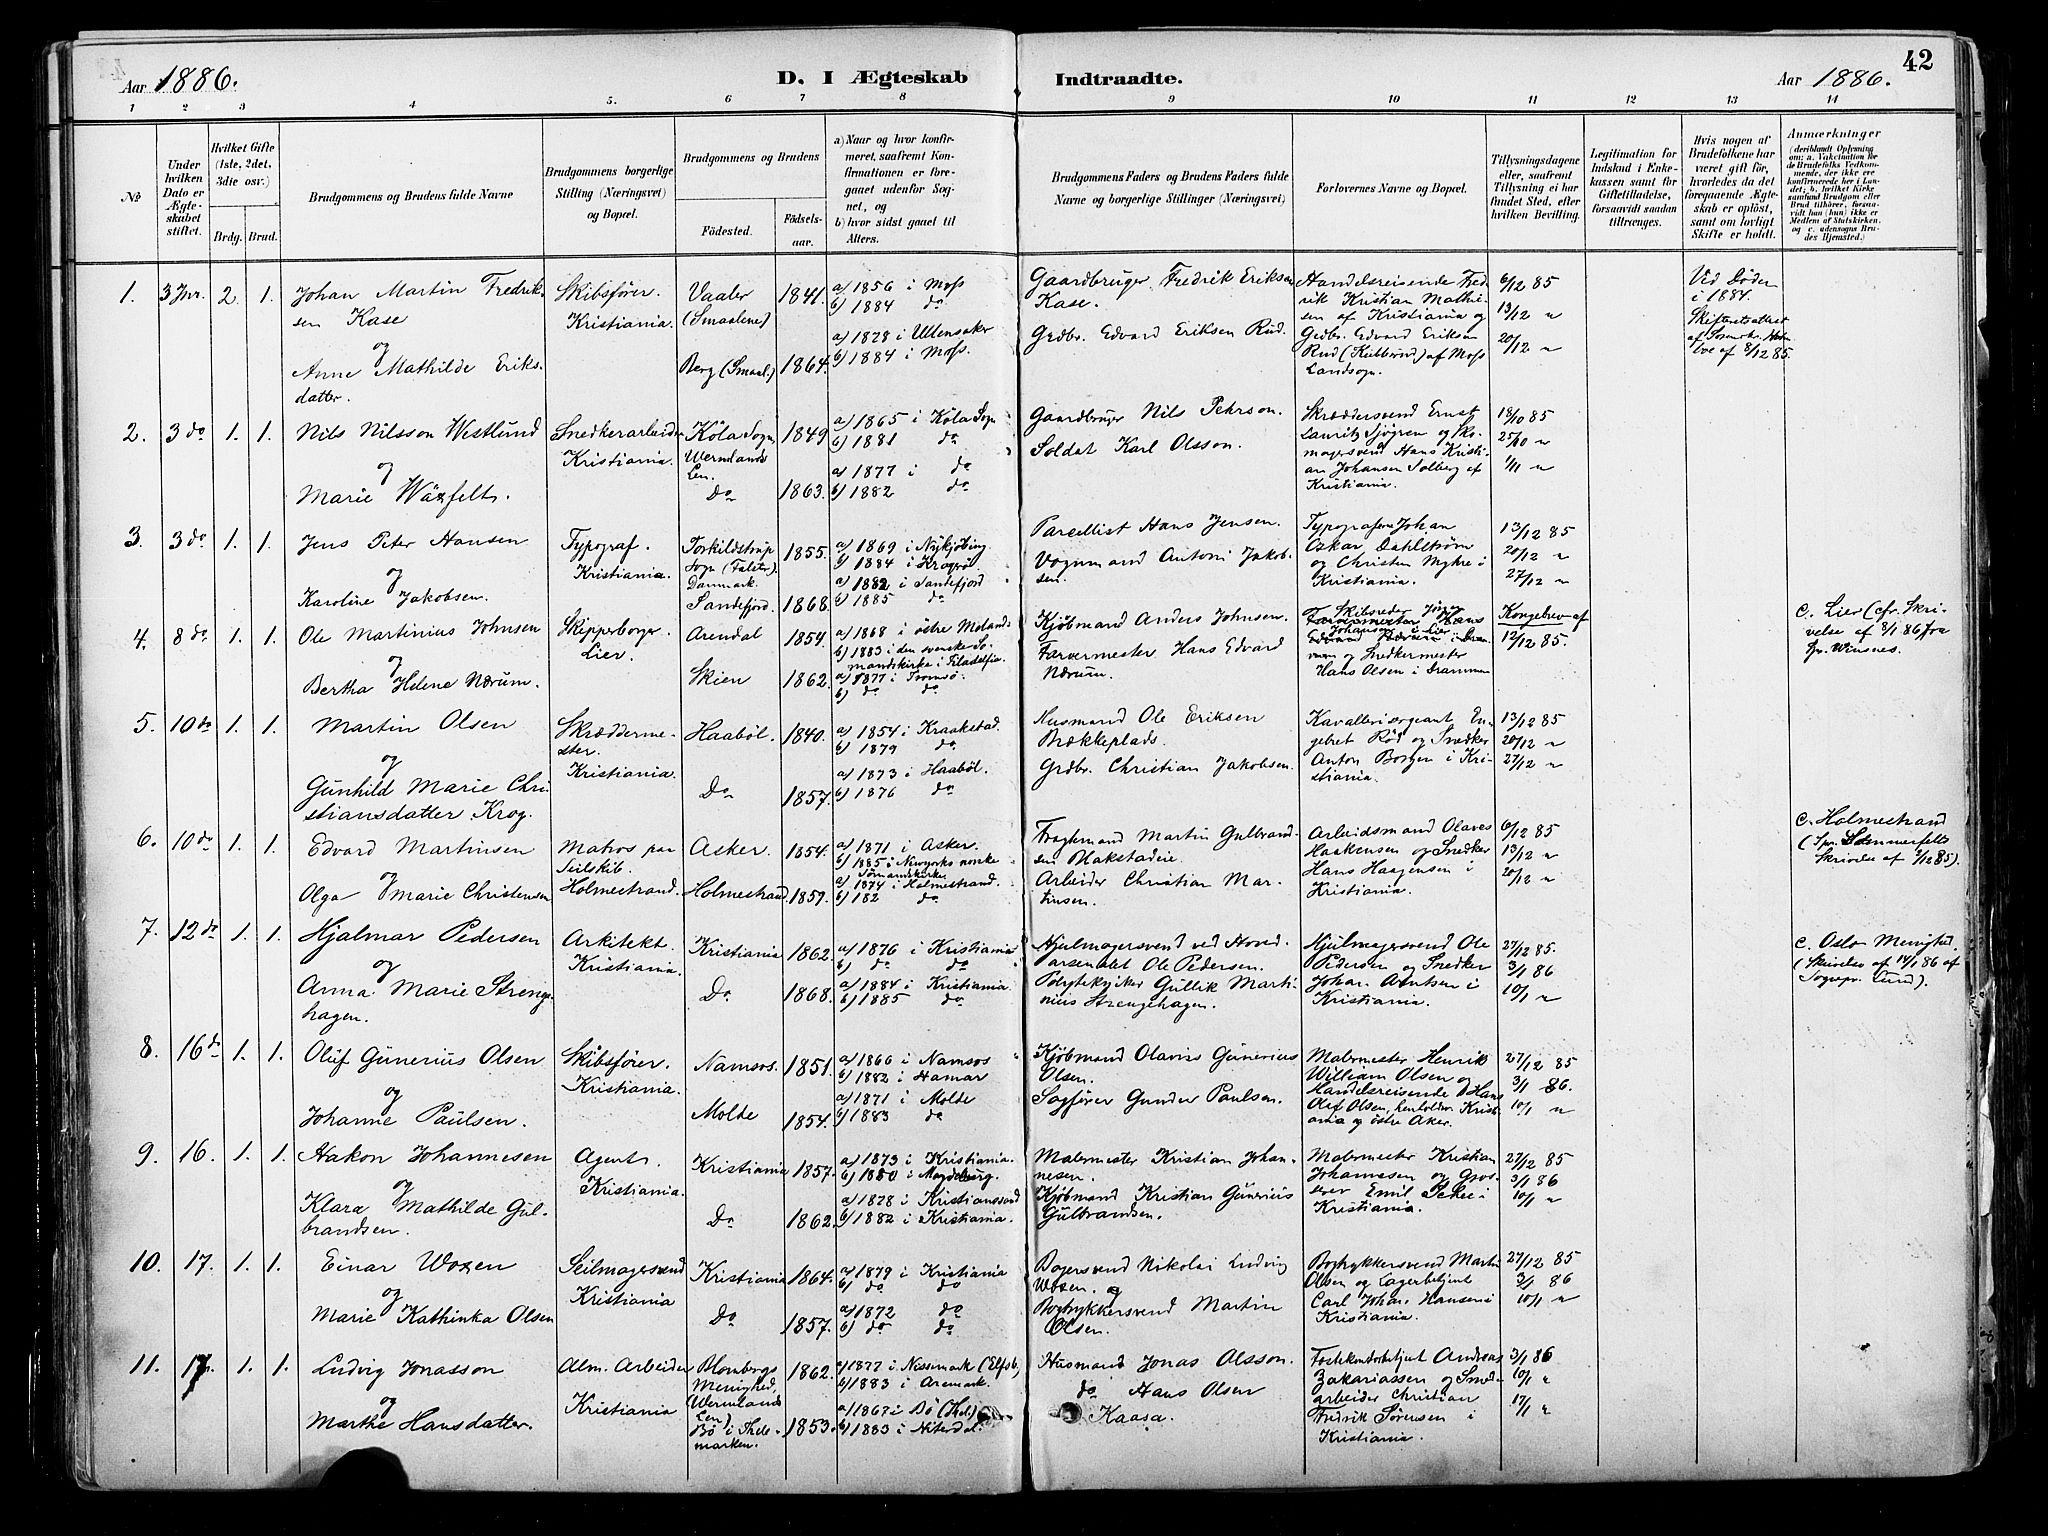 42
Aar 1886. D. I Ægteskab Indtraadte. Aar 1886.
1 2 3 4 5. 6 7 8 9 10 11 12 13 14
№
Under hvilken Dato er Ægteskabet stiftet.
Hvilket Gifte (1ste, 2det, 3die osv.)
Brdg. Brud.
Brudgommens og Brudens fulde Navne
Brudgommens borgerlige Stilling (Næringsvei) og Bopæl.
Brudgommens og Brudens
Fødested. Fødselsaar.
a) Naar og hvor konfirmeret, saafremt Konfirmationen er foregaaet udenfor Sognet, og
b) hvor sidst gaaet til Alters.
Brudgommens Faders og Brudens Faders fulde Navne og borgerlige Stillinger (Næringsvei)
Forlovernes Navne og Bopæl.
Tillysningsdagene eller, saafremt Tillysning ei har fundet Sted, efter hvilken Bevilling.
Legitimation for Indskud i Enkekassen samt for Giftetilladelse, forsaavidt saadan tiltrænges.
Hvis nogen af Brudefolkene har været gift før, hvorledes da det foregaaende Ægteskab er opløst, samt om lovligt Skifte er holdt.
Anmærkninger (deriblandt Oplysning om: a. Vakcination for de Brudefolks Vedkommende, der ikke ere konfirmerede her i Landet; b. hvilket Kirkesamfund Brudgom eller Brud tilhører, forsaavidt han (hun) ikke er Medlem af Statskirken, og c. udensogns Brudes Hjemsted.)
1. 3 Jnr. 2. 1. Johan Martin Fredriksen Kase
og
Anne Mathilde Eriksdatter.
Skibsfører. Kristiania.
Vaaler (Smaalene) 1841. a) 1856 i Moss b) 1884 do
Berg (Smaal.) 1864. a) 1878 i Ullensaker b) 1884 i Moss.
Gaardbruger Fredrik Eriksen Kase.
Grdbr. Edvard Eriksen Rud.
Handelsreisende Fredrik Kristian Mathisen af Kristiania og Grdbr. Edvard Eriksen Rud af Moss Landsogn.
6/12 85
13/12 "
20/12 "
Ved Døden i 1884.
Skifteretsattest af 8/12 85.
2. 3 do 1. 1. Nils Nilsson Westlund
og
Marie Wäxfelt.
Snedkerarbeider Kristiania.
Köla Sogn Wermlands Len. 1849 a) 1865 i Köla Sogn b) 1881 do
Do 1863. a) 1877 i do b) 1882 do
Gaardbruger Nils Pehrson.
Soldat Karl Olsson.
Skræddersvend Ernst Lauritz Sjøgren og Skomagersvend Hans Kristian Johansen Solberg af Kristiania.
18/10 85
25/10 "
1/11 "
3. 3 do 1. 1. Jens Peter Hansen
og
Karoline Jakobsen.
Typograf. Kristiania.
Torkildstrup Sogn (Falster) Danmark. 1855. a) 1869 i Nykjøbing b) 1884 i Kragerø.
Sandefjord. 1868. a) 1882 i Sandefjord b) 1885 do
Parcellist Hans Jensen.
Vognmand Antoni Jakobsen.
Typograferne Johan Oskar Dahlstrøm og Christen Myhre i Kristiania.
13/12 85
20/12 "
27/12 "
4. 8 do 1. 1. Ole Martinius Johnsen
og
Bertha Helene Nærum.
Skipperborger. Lier.
Arendal 1854. a) 1868 i østre Moland. b) 1883 i den svenske Sømandskirke i Filadelfia.
Skien 1862. a) 1877 i Tromsø. b) do do
Kjøbmand Anders Johnsen.
Farvermester Hans Edvard Nærum.
Skibsreder Jørgen Johansen i Lier og Snedkermester Hans Olsen i Drammen
Kongebrev af 12/12 85.
c. Lier (cfr. Skrivelse af 8/1 86 fra Winsnes.
5. 10 do 1. 1. Martin Olsen
og
Gunhild Marie Christiansdatter Krog.
Skræddermester. Kristiania.
Haabøl. 1840. a) 1854 i Kraakstad. b) 1879 do
Do 1857. a) 1873 i Haabøl. b) 1876 do
Husmand Ole Eriksen Brækkeplads.
Grdbr. Christian Jakobsen.
Kavallerisergeant Engebret Rød og Snedker Anton Borgen i Kristiania.
13/12 85
20/12 "
27/12 "
6. 10 do 1. 1. Edvard Martinsen
og
Olga Marie Christensen
Matros paa Seilskib. Holmestrand.
Asker. 1854. a) 1871 i Asker. b) 1885 i Newyorks norske Sømandskirke.
Holmestrand. 1857. a) 1874 i Holmestrand. b) 182 do
Martin Gulbrandsen
Arbeider Christian Martinsen.
Arbeidsmand Olaves Haakensen og Snedker Hans Haagensen i Kristiania.
6/12 85
13/12 "
20/12 "
c. Holmestrand (Spr. Sommerfelts Skrivelse af 9/12 85).
7. 12 do 1. 1. Hjalmar Pedersen
og
Anna Marie Strengehagen.
Arkitekt. Kristiania.
Kristiania 1862. a) 1876 i Kristiania b) do do
Do. 1868. a) 1884 i Kristiania. b) 1885 do
Hjulmagersvend ved Hovedarsenalet Ole Pedersen.
Gullik Martinius Strengehagen.
Hjulmagersvend Ole Pedersen og Snedker Johan Arntsen i Kristiania.
27/12 85.
3/1 86
10/1 "
c. Oslo Menighed. (Skrivelse af 14/1 86 af Sognepr. Lund).
8. 16 do 1. 1. Oluf Gunerius Olsen
og
Johanne Paulsen.
Skibsfører. Kristiania.
Namsos. 1851. a) 1866 i Namsos b) 1882 i Hamar
Molde 1854. a) 1871 i Molde b) 1883 do
Kjøbmand Olavius Gunerius Olsen.
Sagfører Gunder Paulsen.
Malermester Henrik William Olsen og Handelsreisende Hans Olaf Olsen, henholdsv. Kristiania og østre Aker.
27/12 85
3/1 86.
10/1 "
9. 16. 1. 1. Hakon Johannesen
og
Klara Mathilde Gulbrandsen.
Agent. Kristiania.
Kristiania 1857. a) 1873 i Kristiania. b) 1880 i Magdeburg.
Do 1862. a) 1878 i Kristianssand b) 1882 i Kristiania.
Malermester Kristian Johannesen.
Kjøbmand Kristian Gunerius Gulbrandsen.
Malermester Kristian Johannesen og Grosserer Emil i Kristiania.
27/12 85
3/1 86
10/1 "
10. 17. 1. 1. Einar Woxen
og
Marie Kathinka Olsen
Seilmagersvend Kristiania
Kristiania 1864. a) 1879 i Kristiania b) do do
Do 1857. a) 1872 do b) do do
Bagersvend Nikolai Ludvig Woxen. og
Bogtrykkersvend Martin Olsen.
Bogtrykkersvend Martin Olsen og Lagerbetjent Carl Johan Hansen i Kristiania.
27/12 85
3/1 86
10/1 "
11. 17. 1. 1. Ludvig Jonasson
og
Marthe Hansdatter.
Alm. Arbeider Kristiania
Blombergs Menighed (Wermlands Len) 1862. a) 1877 i Nössemark (Elfsb. b) 1883 i Aremark.
Bø i Thelemarken. 1853. a) 1868 i Bø (Thel.) b) 1883 i Nitedal.
Husmand Jonas Olsson.
do Hans Olsen Kaasa.
Andreas Zakariassen og Smedarbeider Christian Fredrik Sørensen i Kristiania.
3/1 86
10/1 "
17/1 "